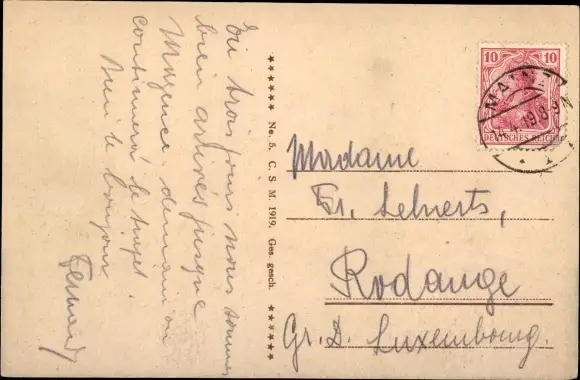 En trois jours nous sommes
bien arrivés jusque
Mayence demain on
continuera le trajet.
Bien le bonjour
Fernand
****** No. 5. C. S. M. 1919. Ges. gesch. ******
10 10
DEUTSCHES REICH
MAINZ
14.4.19. 8-9 N
* 1 *
Madame
Fr. Lehnerts,
Rodange
Gr. D. Luxembourg.